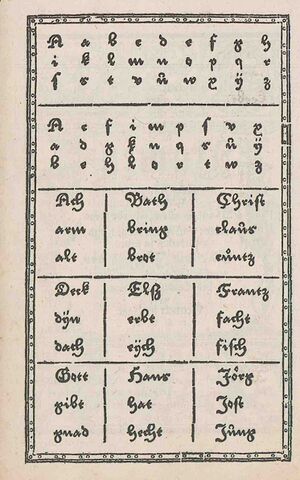 A a b c d e f g h
i k l m n o p q r
ſ s t v ů w x ÿ z
A c f i m p ſ v x
a d g k n q s ů ÿ
b e h l o r t w z
Ach Bath Chriſt
arm bring claůs
alt brot cůntz
Deck Elß Frantz
dÿn erbt facht
dach eÿch fiſch
Gott Hans Jörg
gibt hat Joſt
gnad hecht Jůng